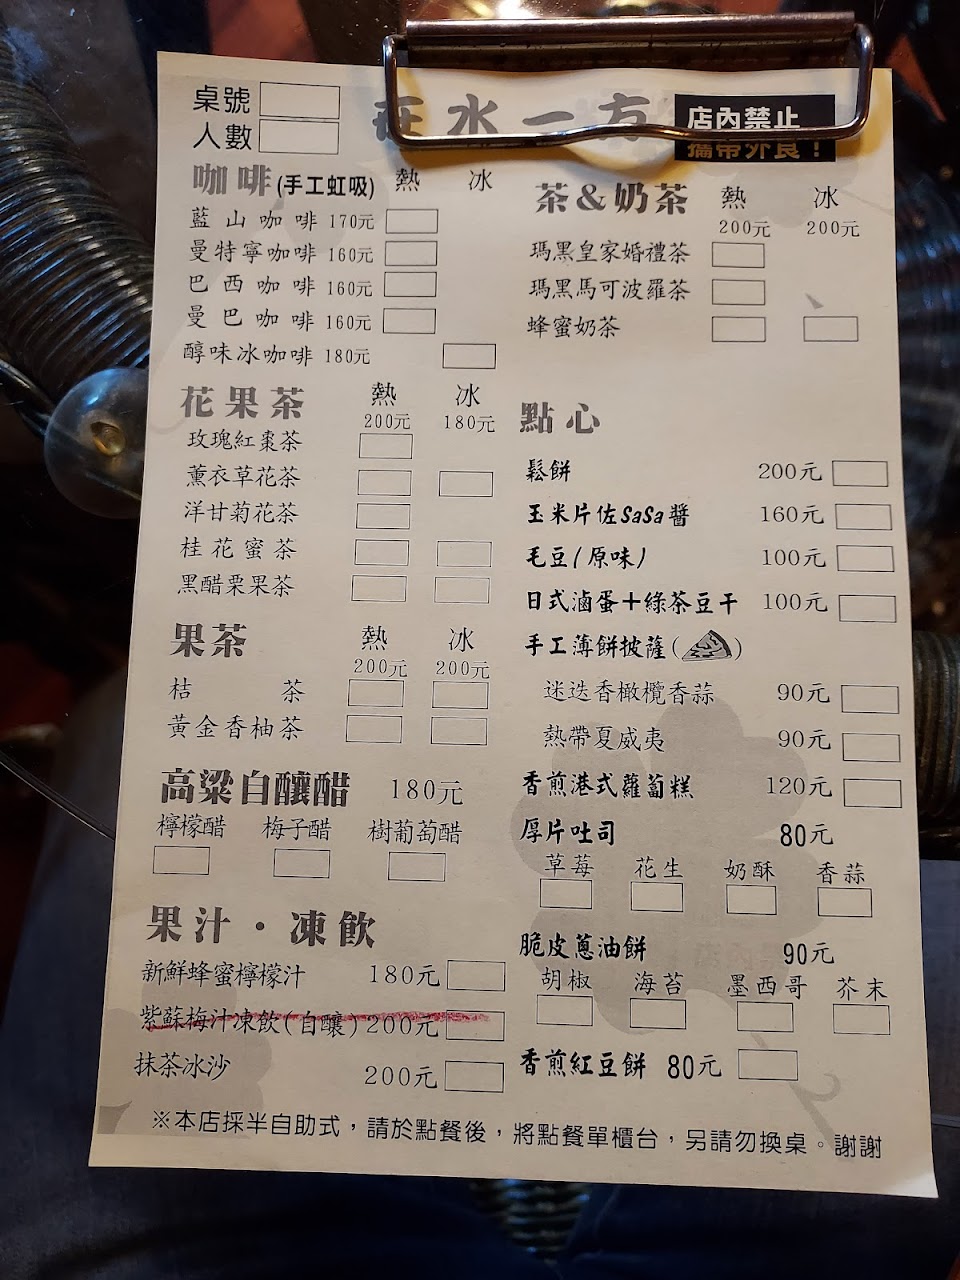 桌號
人數
在水一方
店內禁止
攜帶外食！
咖啡(手工虹吸) 熱 冰
藍山咖啡 170元
曼特寧咖啡 160元
巴西咖啡 160元
曼巴咖啡 160元
醇味冰咖啡 180元
花果茶 熱 冰
200元 180元
玫瑰紅棗茶
薰衣草花茶
洋甘菊花茶
桂花蜜茶
黑醋栗果茶
果茶 熱 冰
200元 200元
桔茶
黃金香柚茶
高粱自釀醋 180元
檸檬醋 梅子醋 樹葡萄醋
果汁·凍飲
新鮮蜂蜜檸檬汁 180元
紫蘇梅汁凍飲(自釀) 200元
抹茶冰沙 200元
茶&奶茶 熱 冰
200元 200元
瑪黑皇家婚禮茶
瑪黑馬可波羅茶
蜂蜜奶茶
點心
鬆餅 200元
玉米片佐SaSa醬 160元
毛豆(原味) 100元
日式滷蛋+綠茶豆干 100元
手工薄餅披薩( )
迷迭香橄欖香蒜 90元
熱帶夏威夷 90元
香煎港式蘿蔔糕 120元
厚片吐司 80元
草莓 花生 奶酥 香蒜
脆皮蔥油餅 90元
胡椒 海苔 墨西哥 芥末
香煎紅豆餅 80元
※本店採半自助式，請於點餐後，將點餐單櫃台，另請勿換桌。謝謝